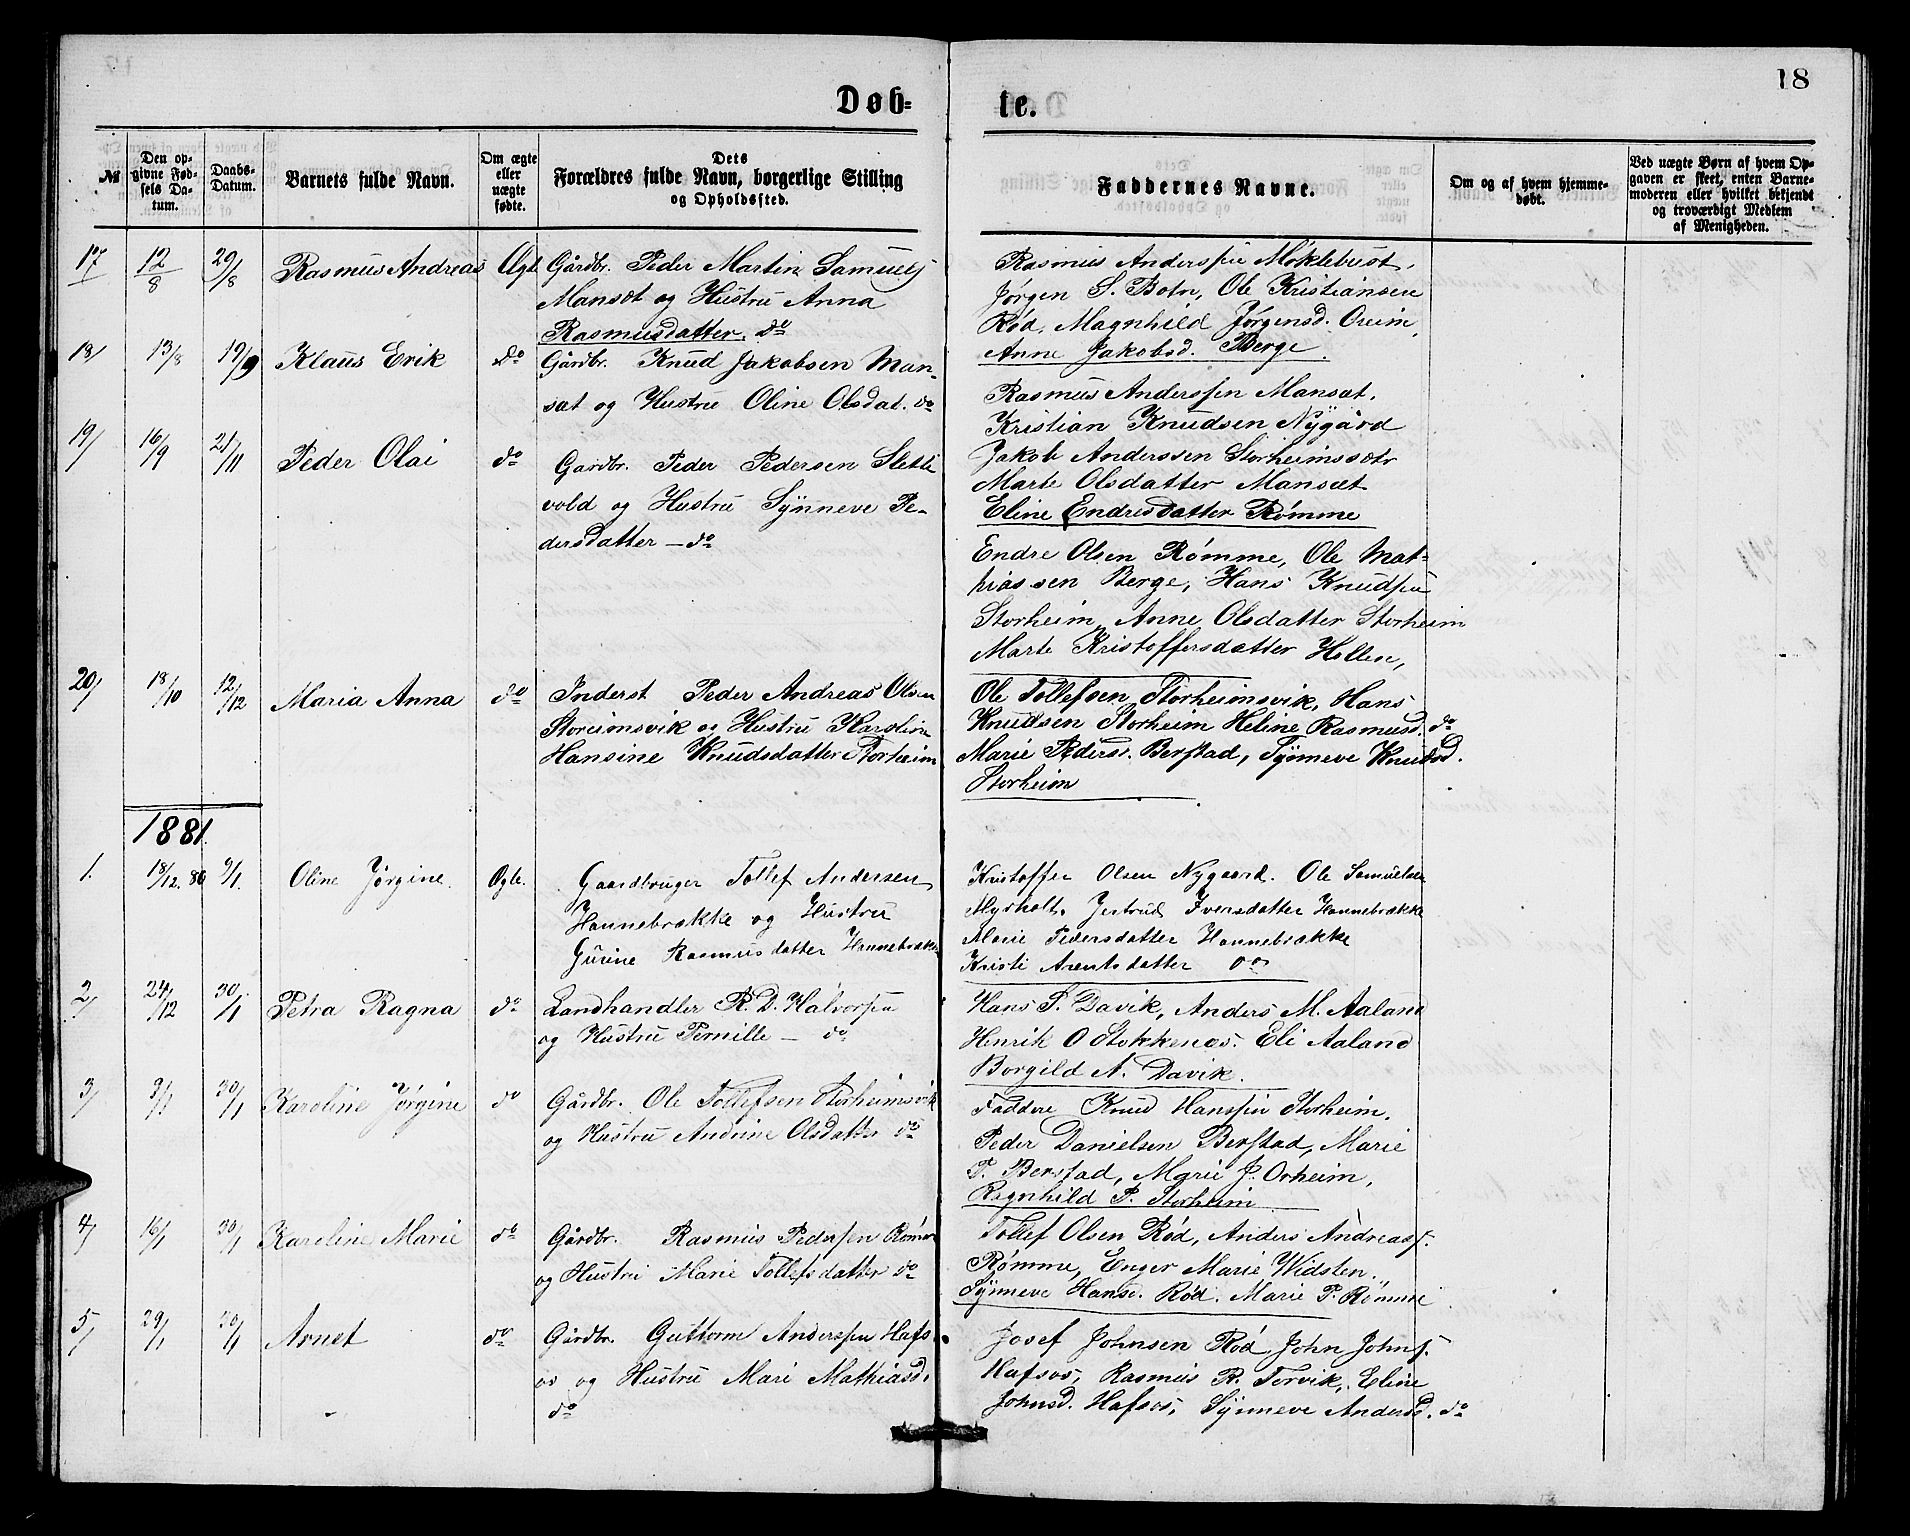 18
Døb-
te.
№
Den op-
givne Fød-
sels Da-
tum.
Daabs-
Datum.
Barnets fulde Navn.
Om ægte
eller
uægte
fødte.
Dets
Forældres fulde Navn, borgerlige Stilling
og Opholdssted.
Faddernes Navne.
Om og af hvem hjemme-
døbt.
Ved uægte Børn af hvem Op-
gaven er skeet, enten Barne-
moderen eller hvilket bekjendt
og troværdigt Medlem
af Menigheden.
17 12/8 29/8 Rasmus Andreas Ægt.
Gårdbr. Peder Martin Samuels
Mansæt og Hustru Anna
Rasmusdatter. do
Rasmus Anderssen Møklebust,
Jørgen S. Botn, Ole Kristiansen
Rød, Magnhild Jørgensd. Oreim,
Anne Jakobsd. Berge
18/ 13/8 19/9 Klaus Erik do
Gårdbr. Knud Jakobsen Man-
sat og Hustru Oline Olsdat. do
Rasmus Anderssen Mansæt,
Kristian Knudsen Nygård
Jakob Anderssen Storheimssætr
Marte Olsdatter Mansæt
Eline Endresdatter Rømme
19/ 16/9 21/11 Peder Olai do
Gardbr. Peder Pedersen Slette
vold og Hustru Synneve Pe-
dersdatter - do
Endre Olsen Rømme, Ole Mat-
hiassen Berge, Hans Knudsen
Storheim, Anne Olsdatter Storheim
Marte Kristoffersdatter Hellen,
20/ 18/10 12/12 Maria Anna do
Inderst Peder Andreas Olsen
Storeimsvik og Hustru Karoline
Hansine Knudsdatter Storheim
Ole Tollefsen Storheimsvik, Hans
Knudsen Storheim Heline Rasmusd. do
Marie Pedersd. Berstad, Synneve Knudsd.
Storheim
1881.
1. 18/12. 80 9/1. Oline Jørgine. Ægte.
Gaardbruger Tollef Andersen
Hannebrække og Hustru
Gurine Rasmusdatter Hannebrække
Kristoffer Olsen Nygaard. Ole Samuelsen
Myrholt. Jertrud Iversdatter Hannebrække
Marie Pedersdatter Hannebrække
Kristi Arentsdatter do
2/ 24/12 30/1 Petra Ragna do
Landhandler R. D. Halvorsen
og Hustru Pernille - do
Hans P. Davik, Anders M. Aaland
Henrik O Stokkenæs. Eli Aaland
Borgild A. Davik.
3/ 9/1 30/1 Karoline Jørgine do
Gårdbr. Ole Tollefsen Storheimsvik
og Hustru Andrine Olsdatter do
Faddere Knud Hanssen Storheim,
Peder Danielsen Berstad, Marie
P. Berstad, Marie J. Orheim,
Ragnhild P. Storheim
4/ 16/1 30/1 Karoline Marie do
Gårdbr. Rasmus Pedersen Rømme
og Hustru Marie Tollefsdatter do
Tollef Olsen Rød, Anders Andreass.
Rømme, Enger Marie Widsten,
Synneve Hansd. Rød. Marie P. Rømme
5/ 29/1 30/1 Arnet do
Gårdbr. Guttorm Anderssen Hafs
os og Hustru Mari Mathiasd.
do
Josef Johnsen Rød, John Johns.
Hafsos, Rasmus R. Torvik, Eline
Johnsd. Hafsos, Synneve Andersd. do